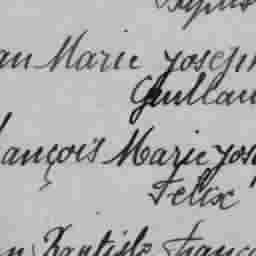 an Marie Joseph
Guillau
ançois Marie Jos
Felix
n Baptiste Franço